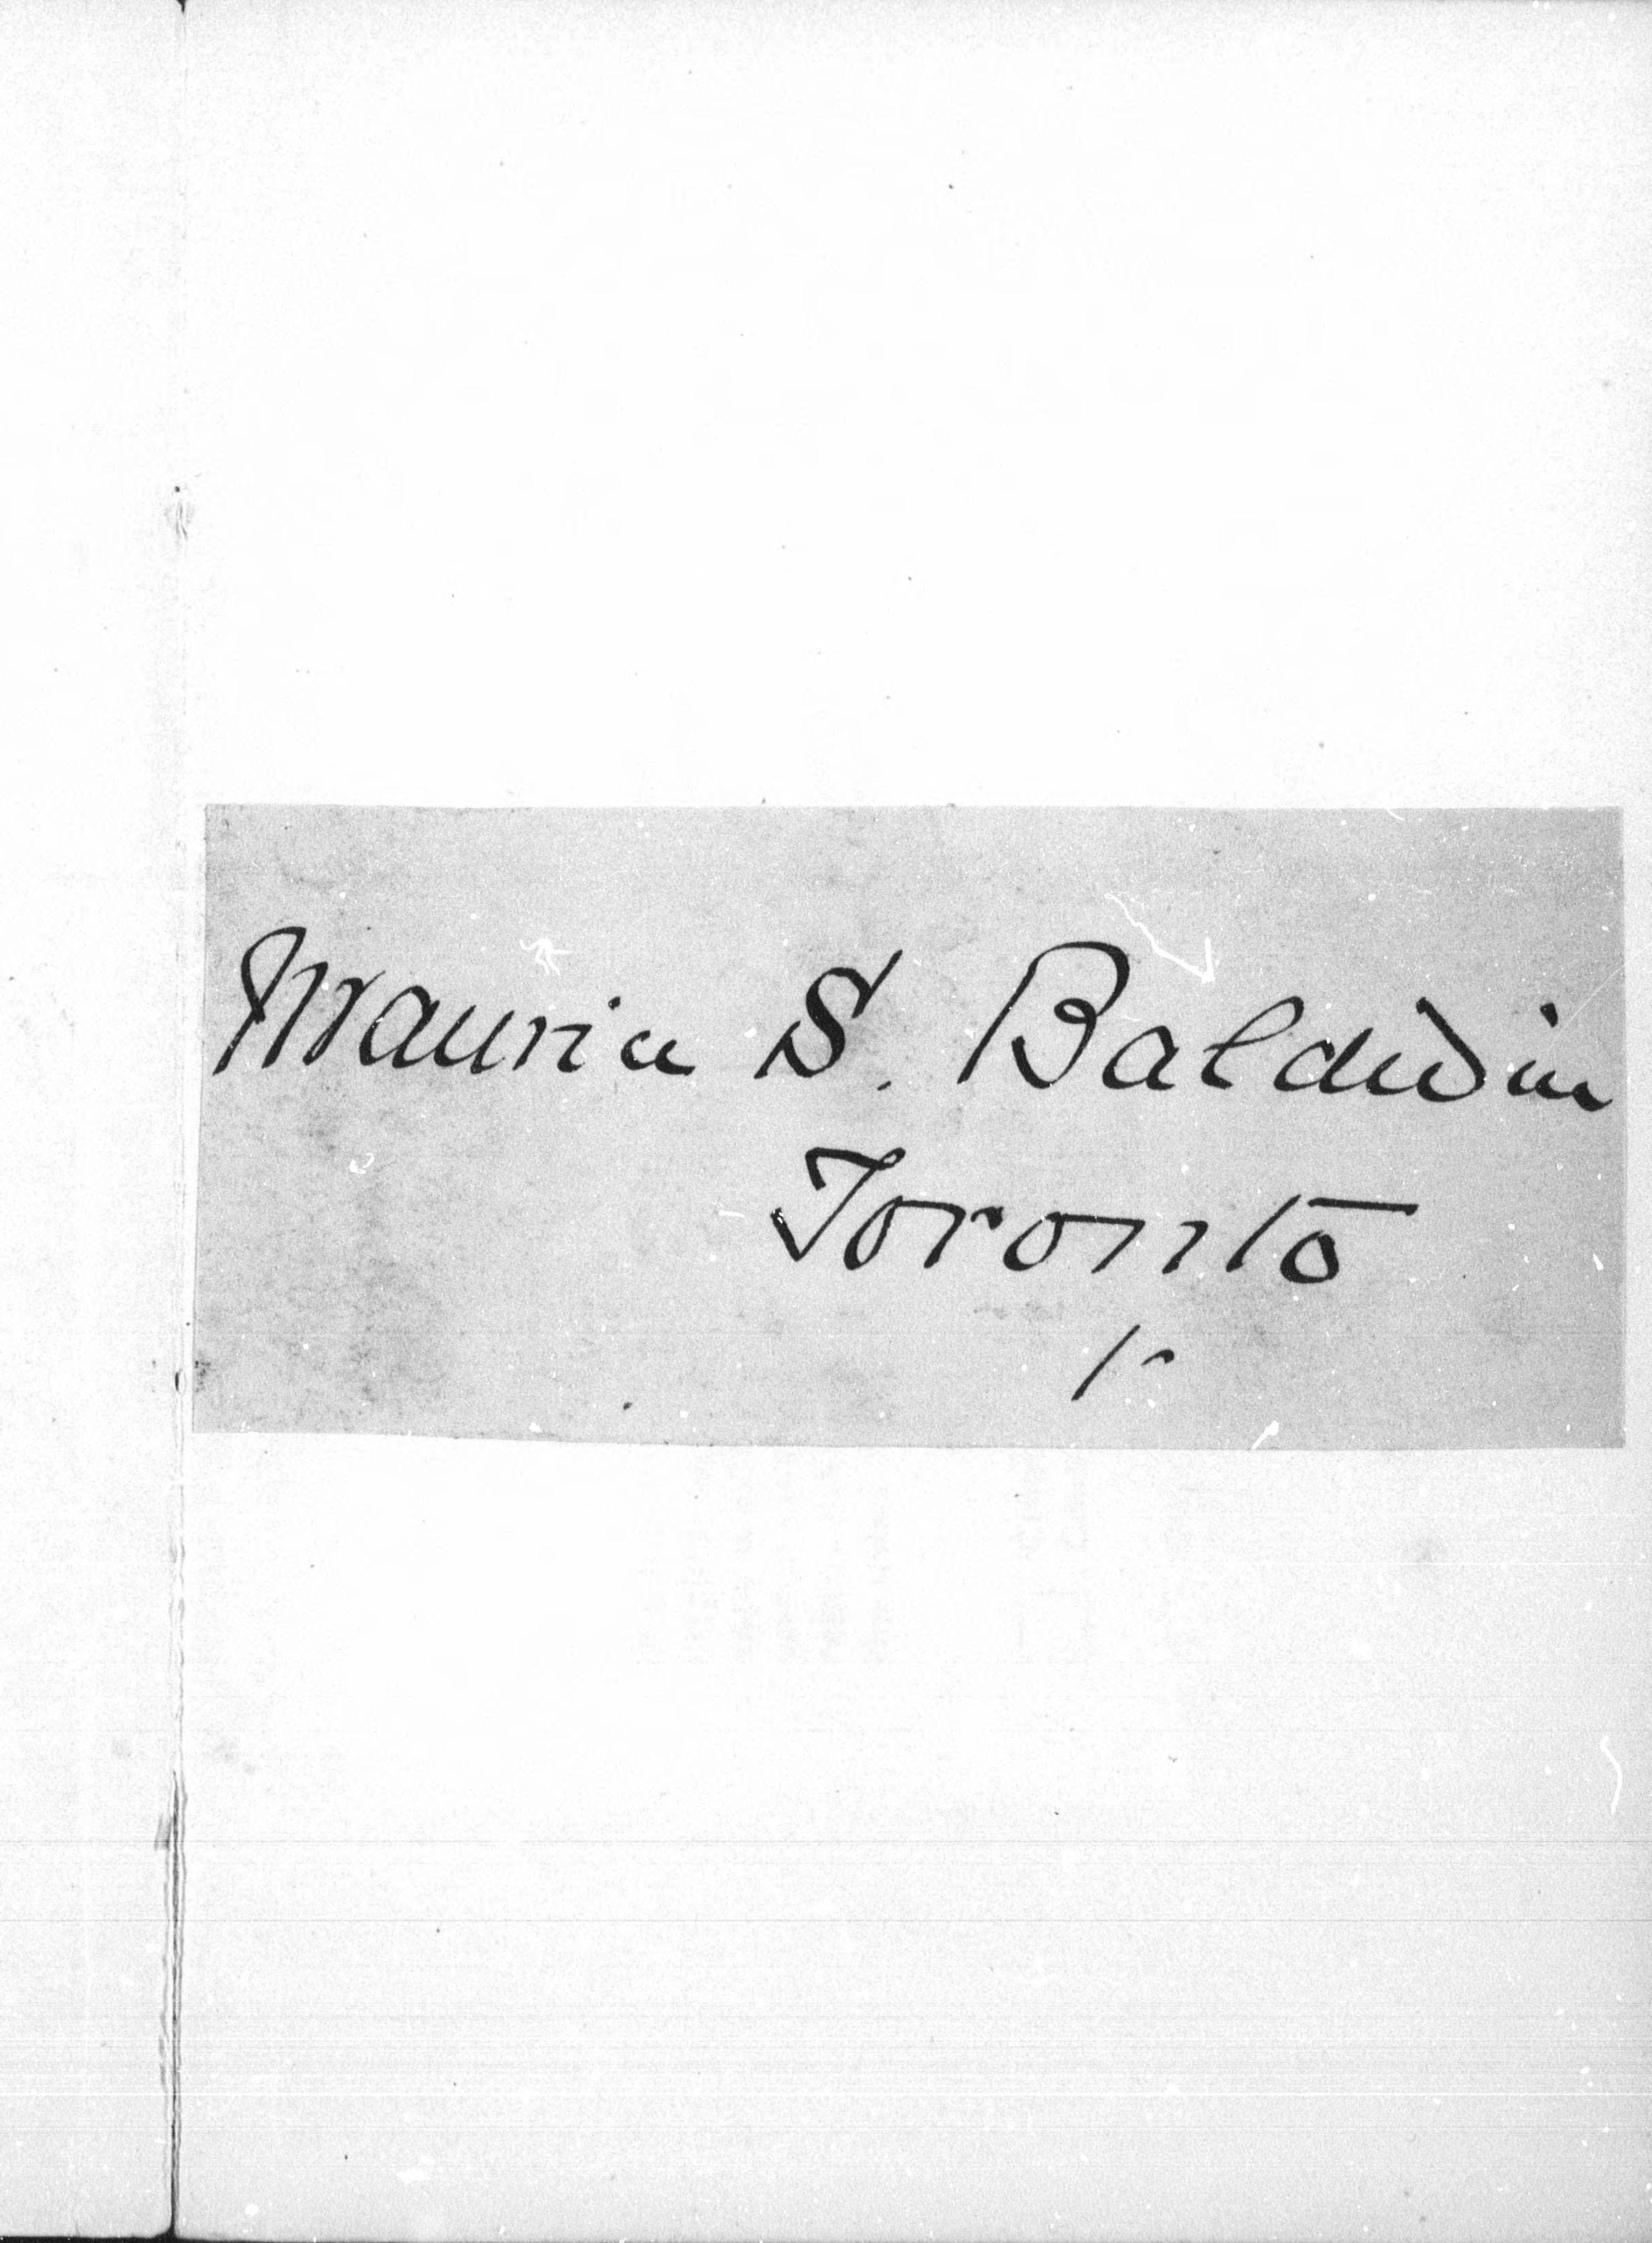 Maurice S. Baldwin
Toronto